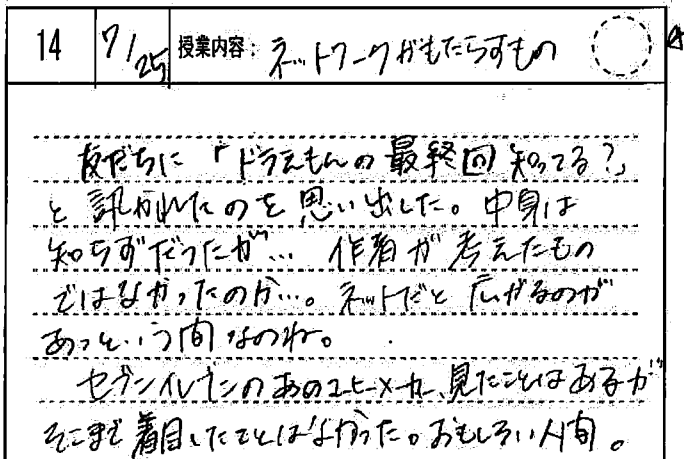 14 7/25 授業内容: ネットワークがもたらすもの
友だちに「ドラえもんの最終回知ってる?」
と訊かれたのを思い出した。中身は
知らずだったが… 作者が考えたもの
ではなかったのか…。ネットだと広がるのが
あっという間なのね。
セブンイレブンのあのコーヒーメーカー、見たことはあるが
そこまで着目したことはなかった。おもしろい人間。